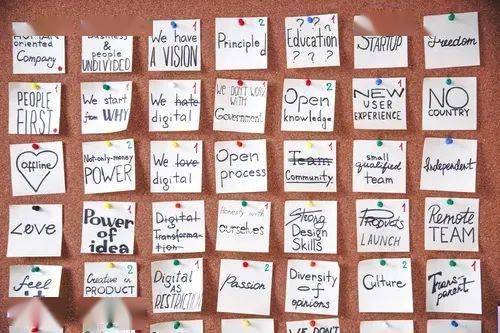 HUMAN
oriented
Company.
Business
&
people
UNDIVIDED
We have
A VISION
1
Principled
2
? ? ?
Education
? ? ?
1
STARTUP
Freedom
PEOPLE
FIRST.
1
We start
from WHY
1
We hate
digital
We DON'T WORK
WITH
Government
1
Open
knowledge
2
NEW
USER
EXPERIENCE
1
NO
COUNTRY
offline
Not-only-money
POWER
2
We love
digital
1
Open
process
1
Team
Community.
1
small
qualified
team
Independent
LOVE
Power of
idea
1
Digital
Transforma-
tion
Honesty with
ourselves
1
Strong
Design
Skills
Products
LAUNCH
1
Remote
TEAM
feel
it
Creative in
PRODUCT
2
Digital
AS
DESTRUCTION
1
Passion
2
Diversity
of
opinions
1
Culture
2
Trans
parent
1
WE DON'T